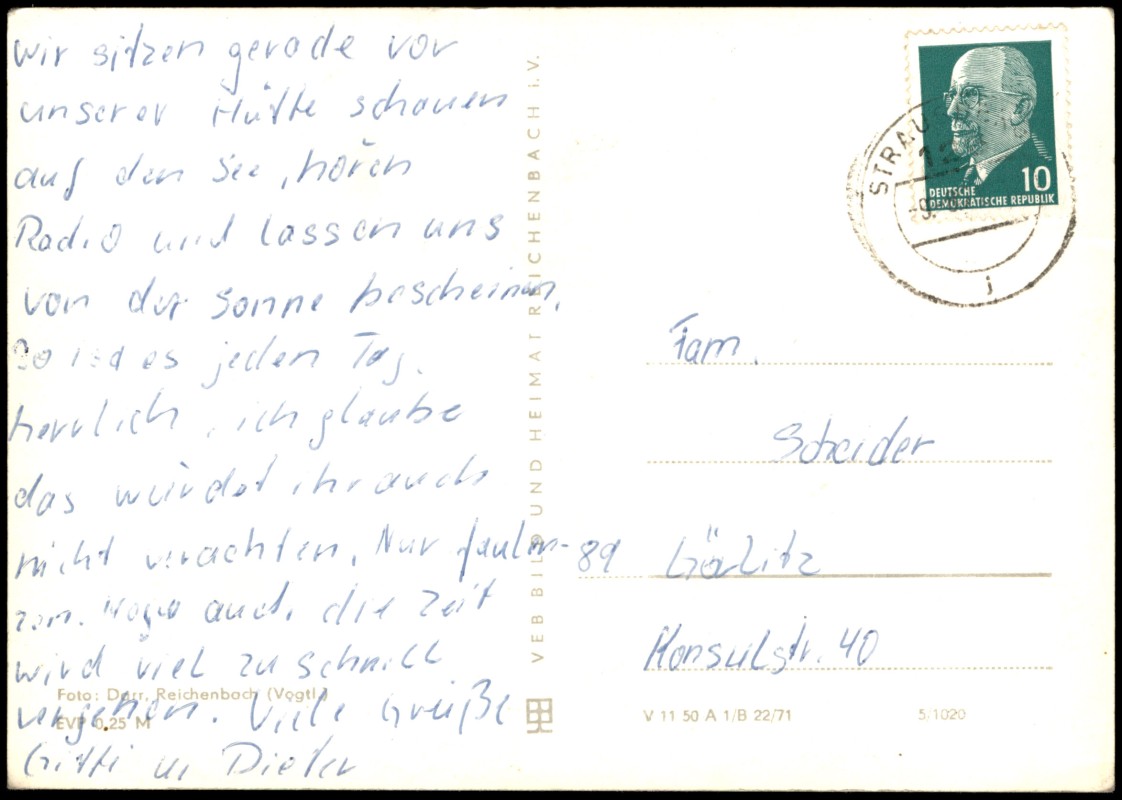 wir sitzen gerade vor
unserer Hütte schauen
auf den See, hören
Radio und lassen uns
von der Sonne bescheinen.
So ist es jeden Tag.
herrlich, ich glaube
das würdet ihr auch
nicht verachten. Nur faulen-
zen. auch die Zeit
wird viel zu schnell
vergehen. Viele Grüße
Gitti u. Dieter
Foto: Darr, Reichenbach (Vogtl.)
EVP 0,25 M
VEB BILD UND HEIMAT REICHENBACH i. V.
STRAUSBERG
j
10
DEUTSCHE
DEMOKRATISCHE REPUBLIK
Fam.
Scheider
89 Görlitz
Konsulstr. 40
V 11 50 A 1/B 22/71 5/1020